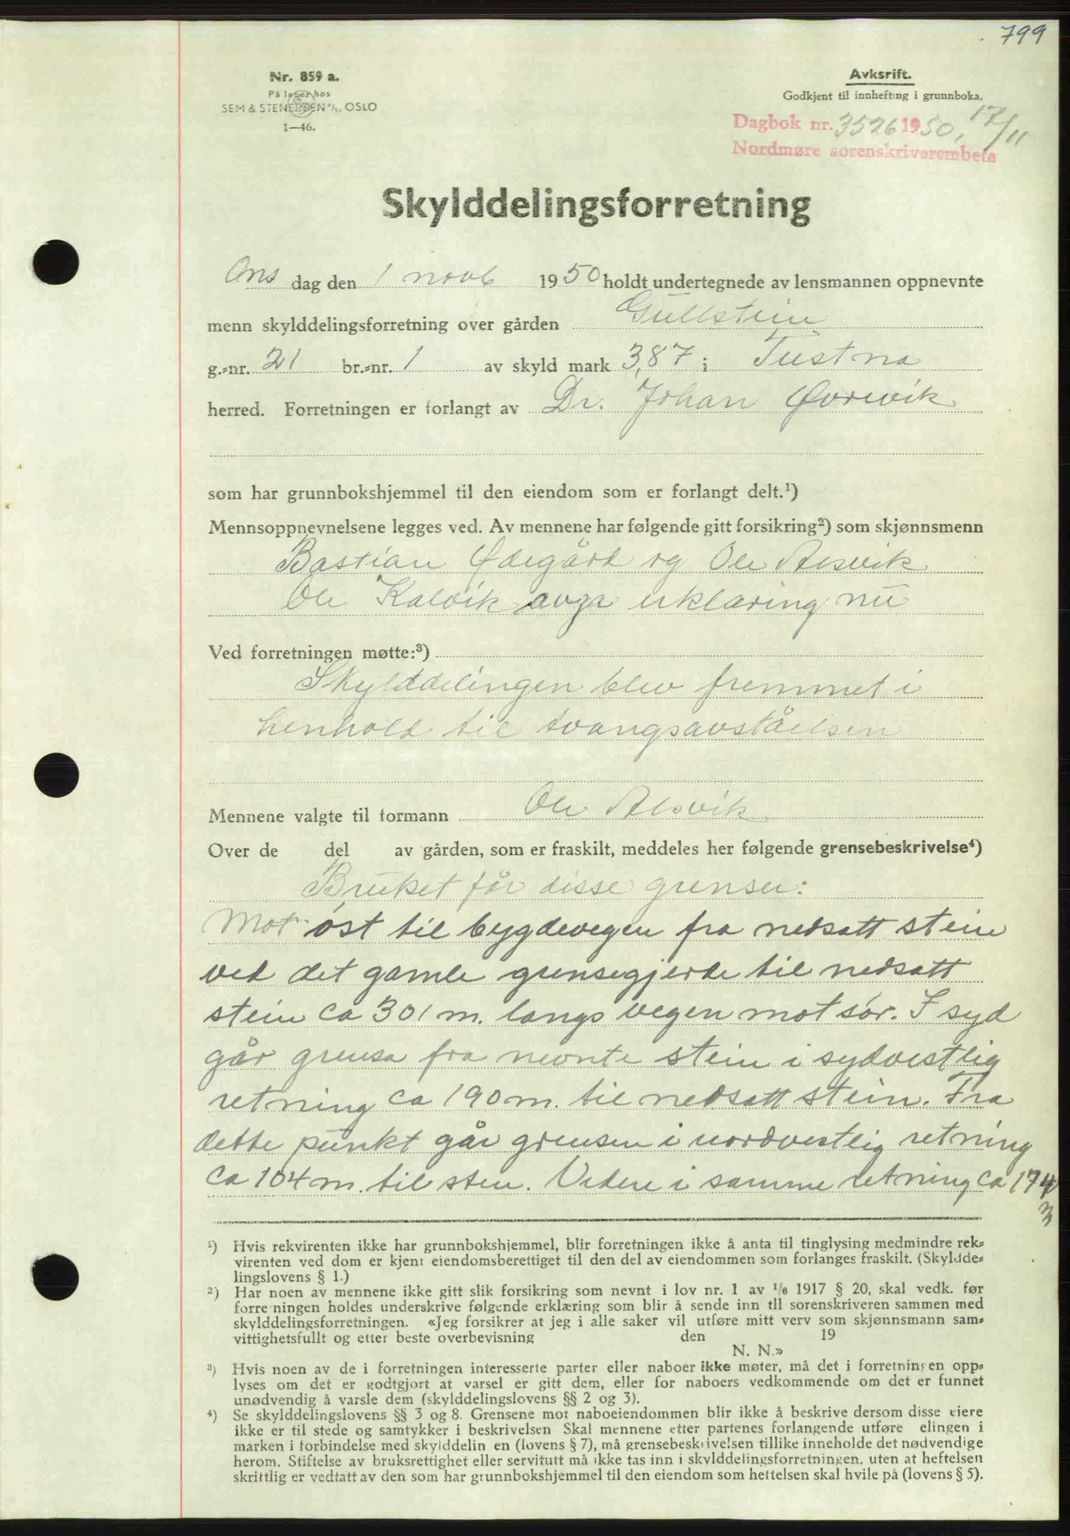 799
Nr. 859 a.
På lager hos
SEM & STENERSEN A/S, OSLO
1—46.
Avksrift.
Godkjent til innhefting i grunnboka.
Dagbok nr. 3526 1950, 17/11
Nordmøre sorenskriverembete
Skylddelingsforretning
Ons dag den 1 novb 1950 holdt undertegnede av lensmannen oppnevnte
menn skylddelingsforretning over gården Gullstein
g.-nr. 21 br.-nr. 1 av skyld mark 3,87 i Tustna
herred. Forretningen er forlangt av Dr. Johan Øvrevik
som har grunnbokshjemmel til den eiendom som er forlangt delt.¹)
Mennsoppnevnelsene legges ved. Av mennene har følgende gitt forsikring²) som skjønnsmenn
Bastian Ødegård og Ole Alsvik
Ole Kalvik avga erklæring nu
Ved forretningen møtte:³)
Skylddelingen blev fremmet i
henhold til tvangsavståelsen
Mennene valgte til formann Ole Alsvik
Over de del av gården, som er fraskilt, meddeles her følgende grensebeskrivelse⁴)
Bruket får disse grenser:
Mot øst til bygdevegen fra nedsatt stein
ved det gamle grensegjerde til nedsatt
stein ca 301 m. langs vegen mot sør. I syd
går grensa fra nevnte stein i sydvestlig
retning ca 190 m. til nedsatt stein. Fra
dette punkt går grensen i nordvestlig retning
ca 104 m. til sten. Videre i samme retning ca 174
¹) Hvis rekvirenten ikke har grunnbokshjemmel, blir forretningen ikke å anta til tinglysing medmindre rek-
virenten ved dom er kjent eiendomsberettiget til den del av eiendommen som forlanges fraskilt. (Skyldde-
lingslovens § 1.)
²) Har noen av mennene ikke gitt slik forsikring som nevnt i lov nr. 1 av 1/6 1917 § 20, skal vedk. før
forretningen holdes underskrive følgende erklæring som blir å sende inn til sorenskriveren sammen med
skylddelingsforretningen. «Jeg forsikrer at jeg i alle saker vil utføre mitt verv som skjønnsmann sam-
vittighetsfullt og etter beste overbevisning den 19
N. N.»
³) Hvis noen av de i forretningen interesserte parter eller naboer ikke møter, må det i forretningen opp-
lyses om det er godtgjort at varsel er gitt dem, eller for naboers vedkommende om det er funnet
unødvendig å varsle dem (skylddelingslovens §§ 2 og 3).
⁴) Se skylddelingslovens §§ 3 og 8. Grensene mot naboeiendommen blir ikke å beskrive dersom disse eiere
ikke er til stede og samtykker i beskrivelsen Skal mennene etter partenes forlangende utføre elingen i
marken i forbindelse med skylddelin en (lovens § 7), må grensebeskrivelsen tillike inneholde det nødvendige
herom. Stiftelse av bruksrettighet eller servitutt må ikke tas inn i skylddelingsforretningen, uten at heftelsen
skriftlig er vedtatt av den som har grunnbokshjemmel til den eiendom som heftelsen skal hvile på (lovens § 5).